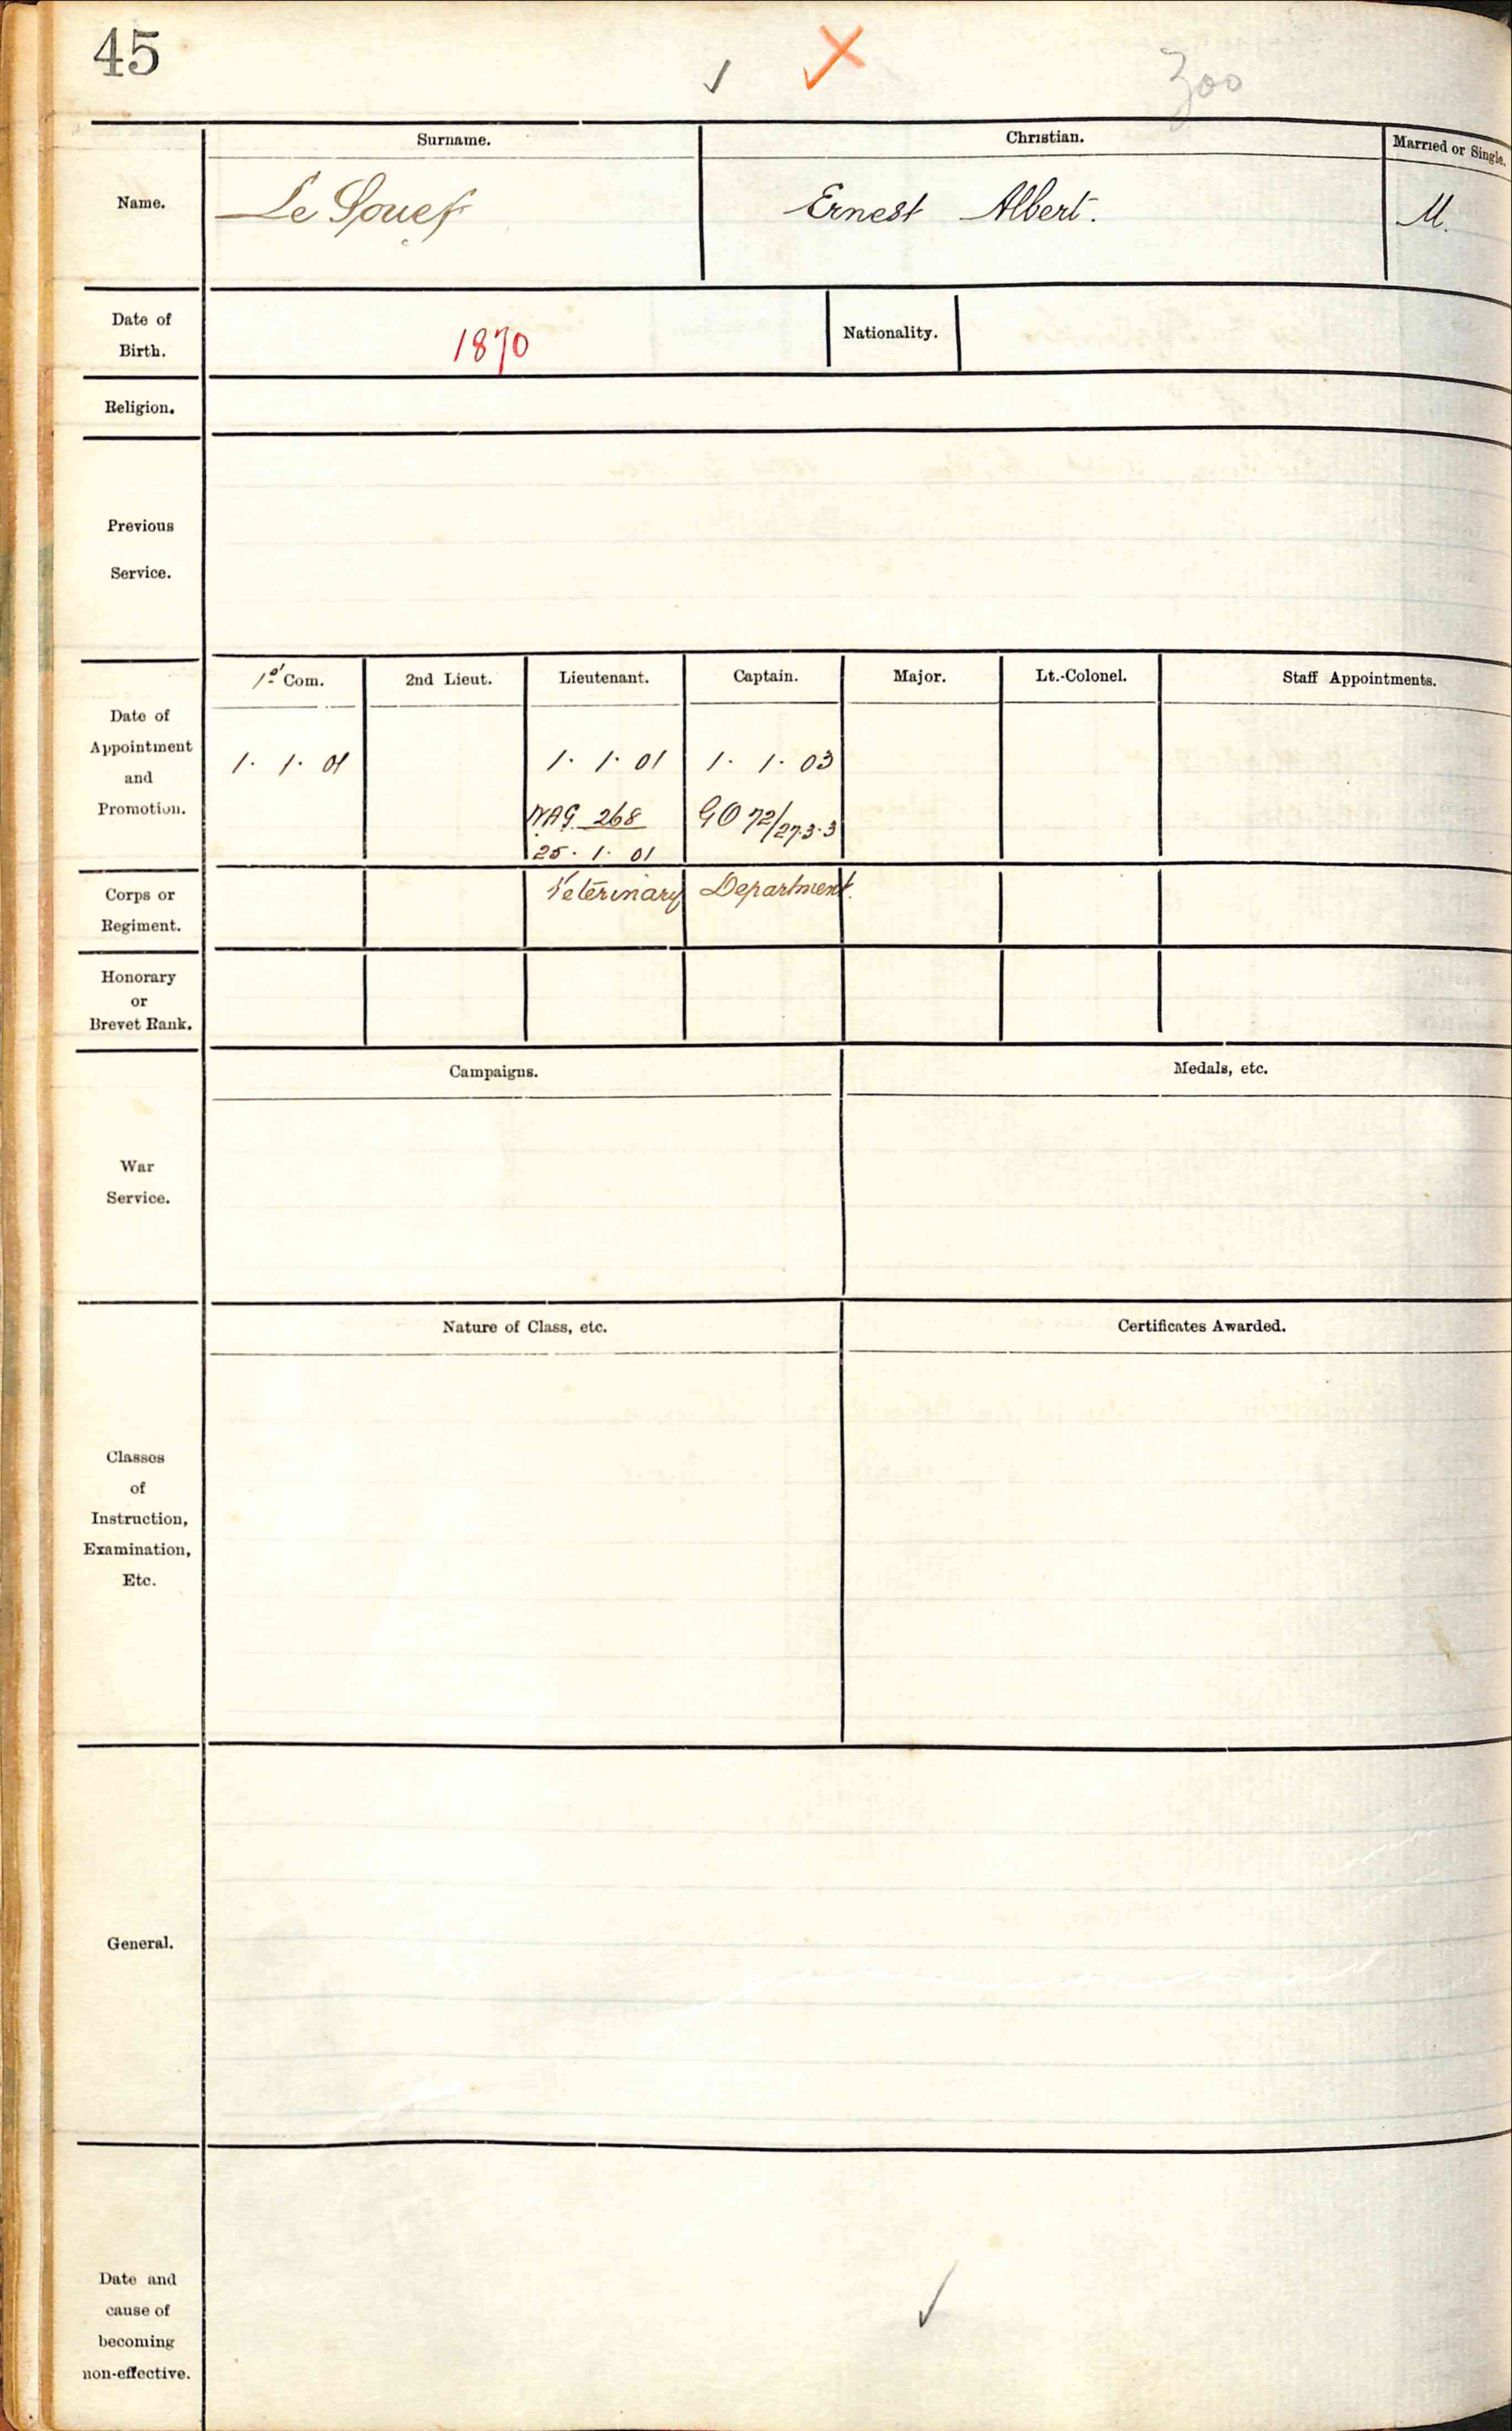 45
300
Surname. Christian. Married or Single.
Name. Le Souef Ernest Albert. M.
Date of Birth. 1870 Nationality.
Religion.
Previous Service.
1st Com. 2nd Lieut. Lieutenant. Captain. Major. Lt.-Colonel. Staff Appointments.
Date of Appointment and Promotion.
1. 1. 01 1. 1. 01 1. 1. 03
WAG 268 GO 72/27.3.3
25. 1. 01
Corps or Regiment. Veterinary Department.
Honorary or Brevet Rank.
Campaigns. Medals, etc.
War Service.
Nature of Class, etc. Certificates Awarded.
Classes of Instruction, Examination, Etc.
General.
Date and cause of becoming non-effective.